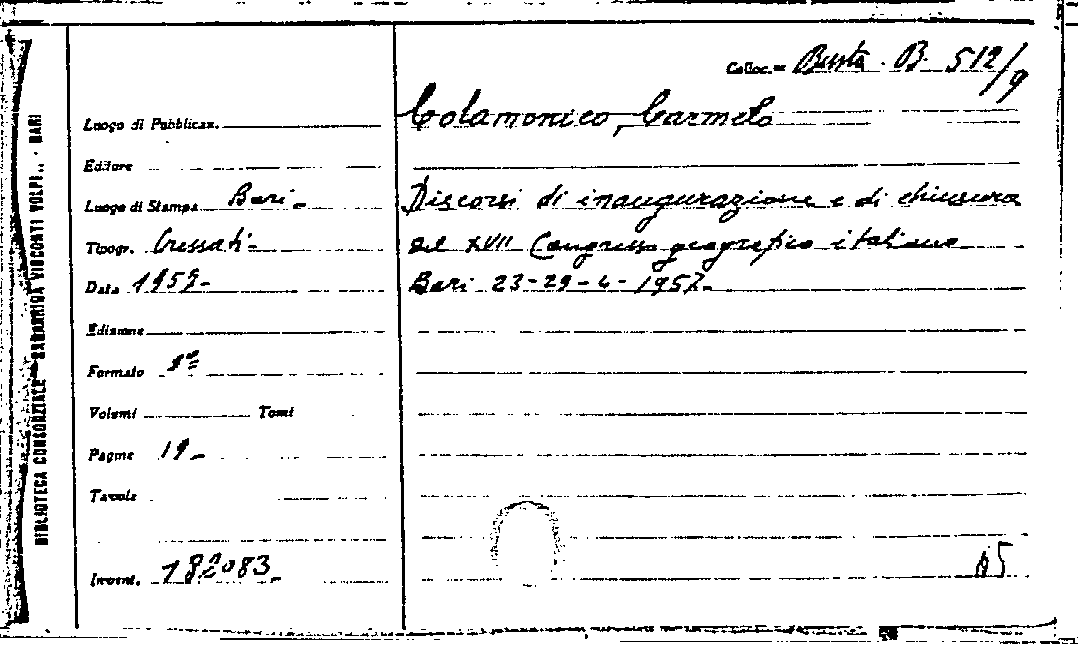 BIBLIOTECA CONSORZIALE SAGARRIGA VISCONTI VOLPI.. - BARI
Colloc.= Busta. B. 512/9
Luogo di Pubblicaz.
Colamonico, Carmelo
Editore
Luogo di Stampa Bari-
Discorsi di inaugurazione e di chiusura
Tipogr. Cressati-
del XVII Congresso geografico italiano
Data 1959-
Bari 23-29-4-1957-
Edizione
Formato 8º
Volumi Tomi
Pagine 19-
Tavole
Invent. 182083-